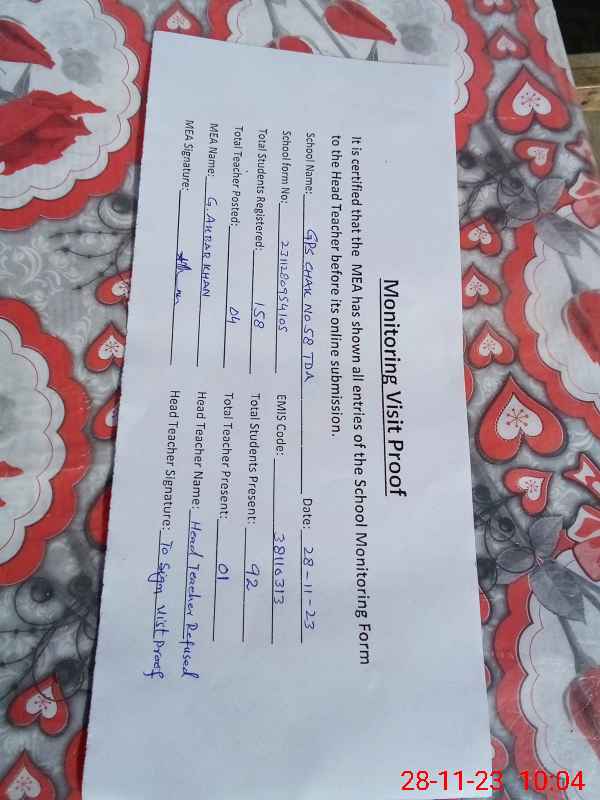 Monitoring Visit Proof
It is certified that the MEA has shown all entries of the School Monitoring Form
to the Head Teacher before its online submission.
School Name: GPS CHAK NO 58 TDA Date: 28-11-23
School form No: 2311280954105 EMIS Code: 38110313
Total Students Registered: 158 Total Students Present: 92
Total Teacher Posted: 04 Total Teacher Present: 01
MEA Name: G. AKBAR KHAN Head Teacher Name: Head Teacher Refused
MEA Signature: Head Teacher Signature: To Sign Visit Proof
28-11-23 10:04